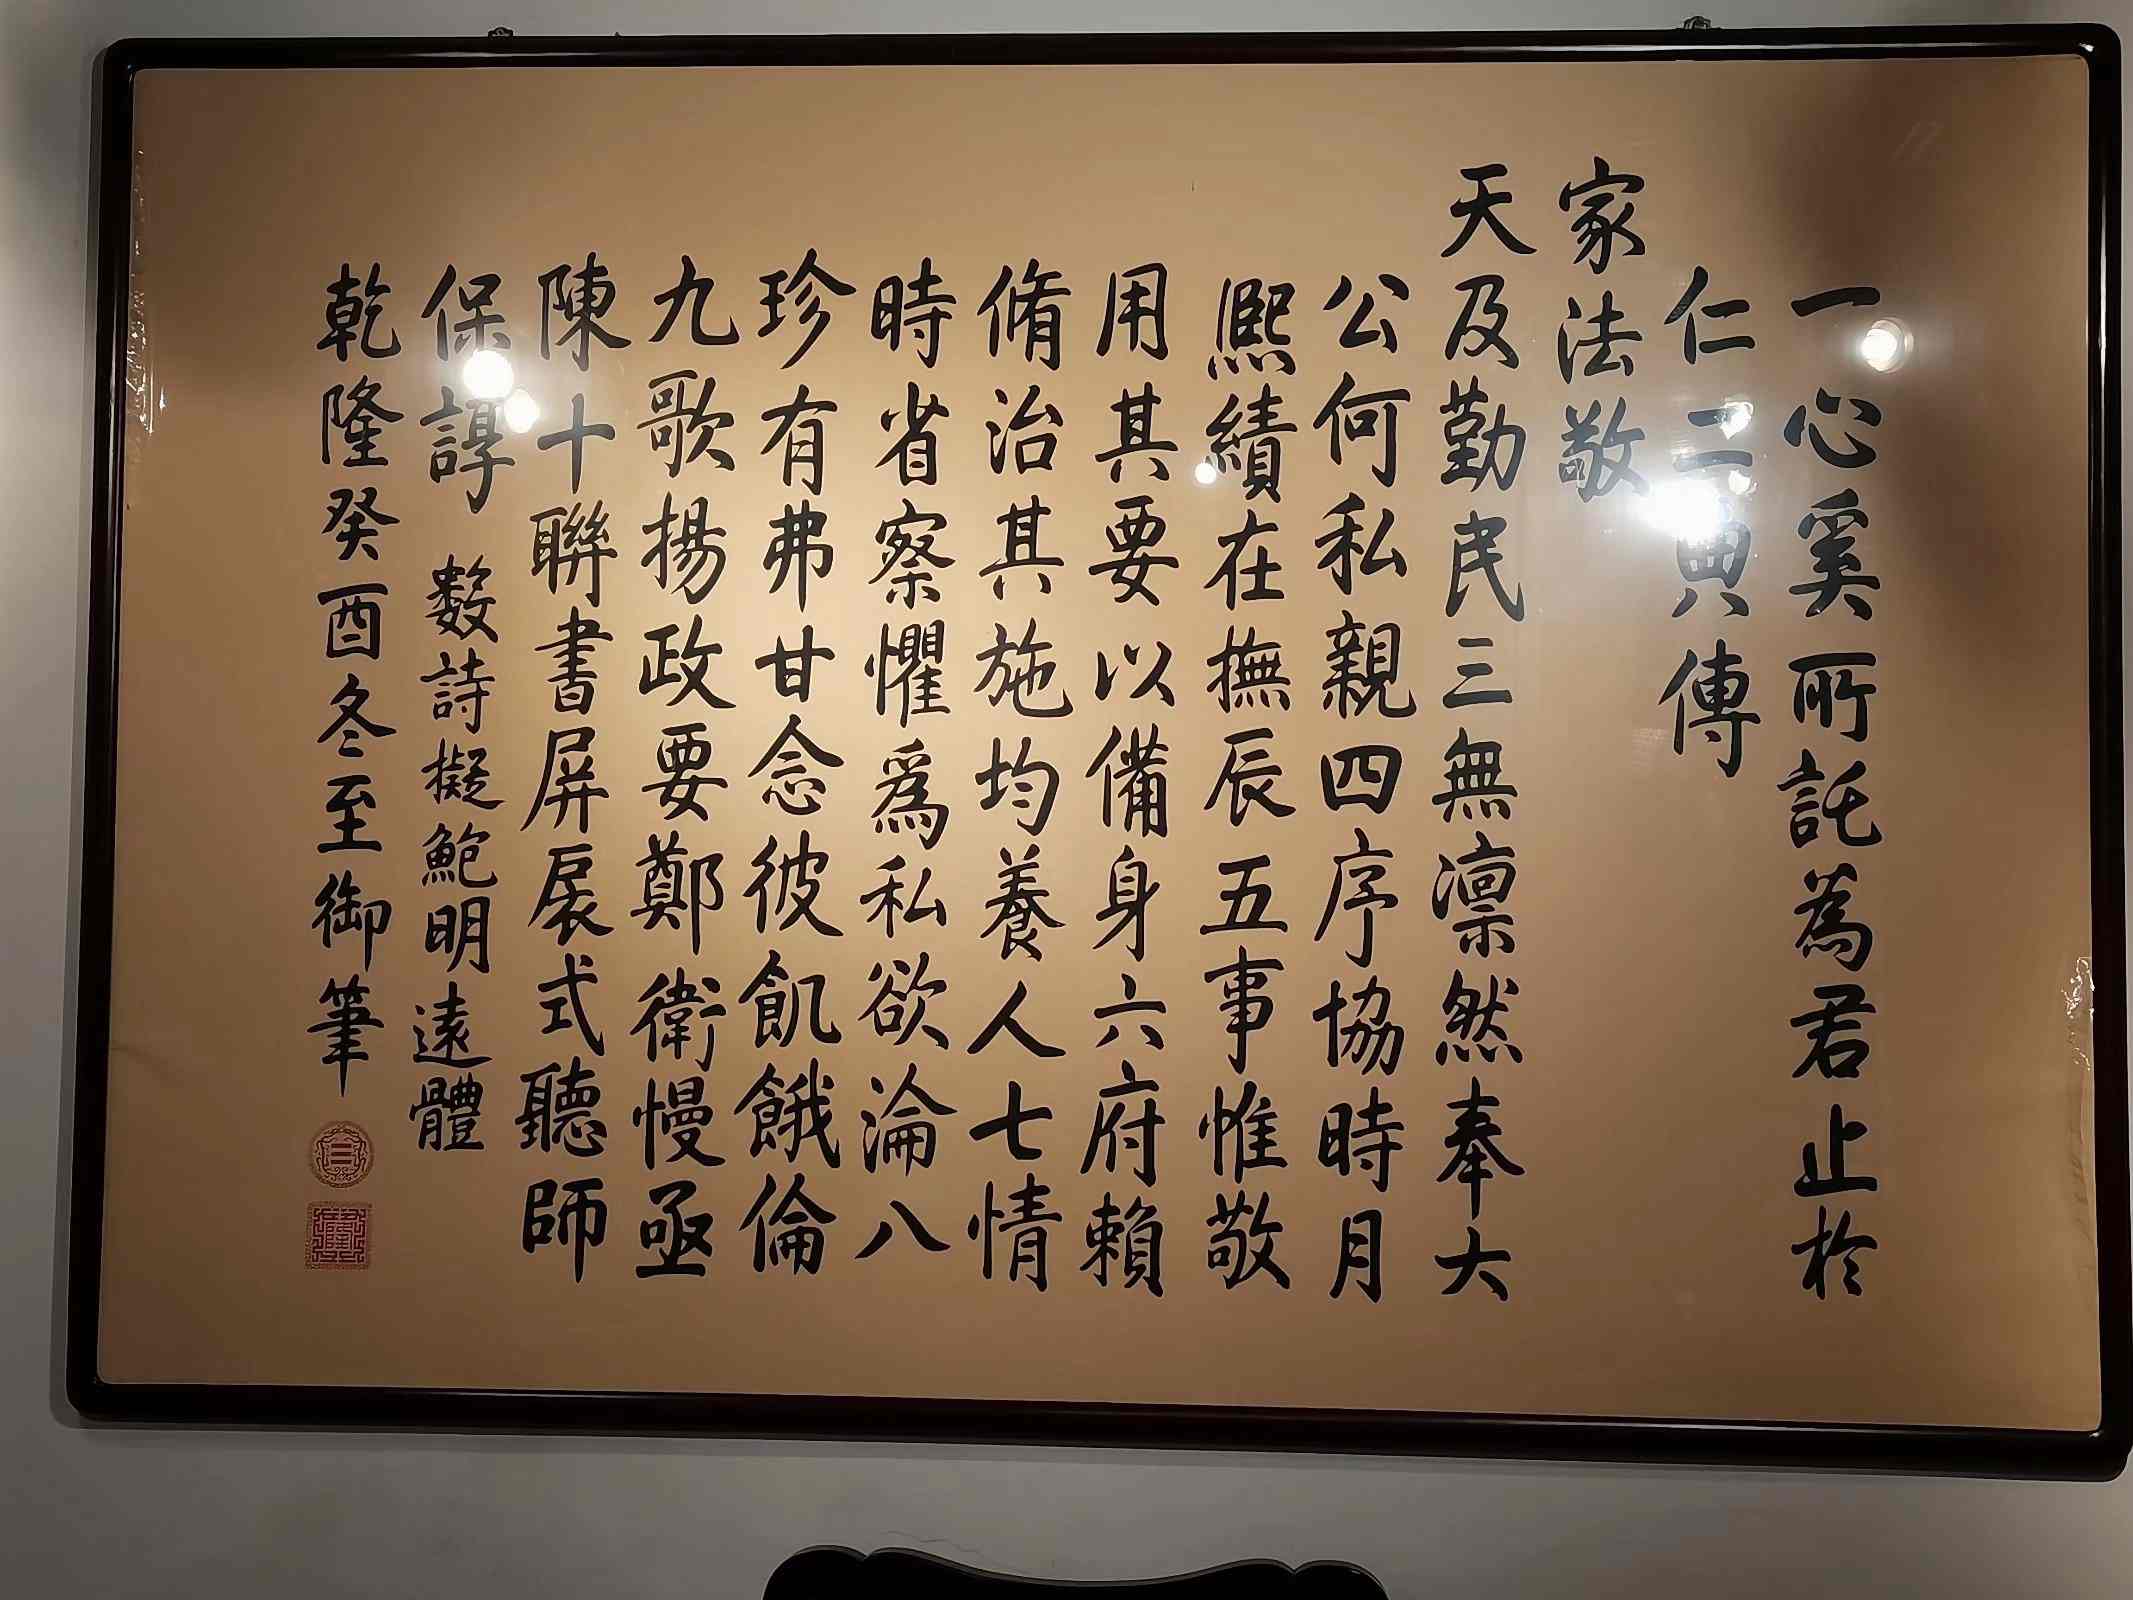 一心奚所託為君止於
仁二典傳
家法敬
天及勤民三無凛然奉大
公何私親四序協時月
熙績在撫辰五事惟敬
用其要以備身六府賴
脩治其施均養人七情
時省察懼爲私欲淪八
珍有弗甘念彼飢餓倫
九歌揚政要鄭衛慢亟
陳十聯書屏扆式聽師
保諄 數詩擬鮑明遠體
乾隆癸酉冬至御筆